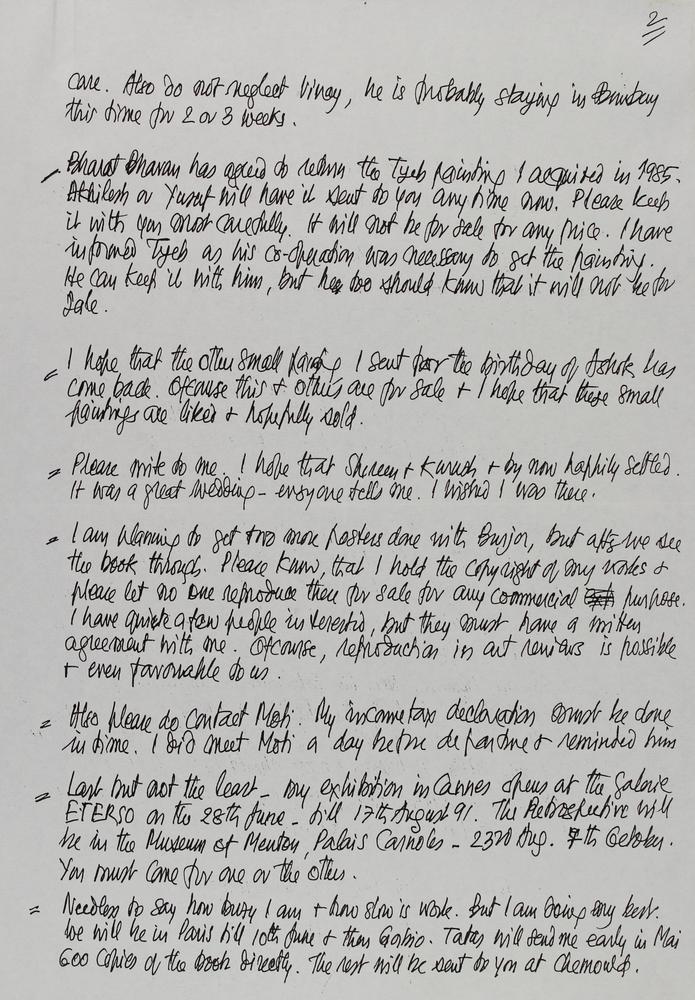 2
care. Also do not neglect Vinay, he is probably staying in Bombay
this time for 2 or 3 weeks.
Bharat Bhavan has agreed to return the Tyeb painting I acquired in 1985.
Akhilesh or Yusuf will have it sent to you any time now. Please keep
it with you most carefully. It will not be for sale for any price. I have
informed Tyeb as his co-operation was necessary to get the painting.
He can keep it with him, but he too should know that it will not be for
Sale.
= I hope that the other small painting I sent for the birthday of Ashok has
come back. Ofcourse this + others are for sale + I hope that these small
paintings are liked + hopefully sold.
= Please write to me. I hope that Shireen + Kurush + by now happily settled.
It was a great wedding - everyone tells me. I wished I was there.
= I am planning to get two more posters done with Burjor, but after we see
the book through. Please know, that I hold the copyright of my works +
please let no one reproduce them for sale for any commercial purpose.
I have quite a few people interested, but they must have a written
agreement with me. Ofcourse, reproduction in art reviews is possible
+ even favourable to us.
= Also please do contact Moti. My incometax declaration must be done
in time. I did meet Moti a day before departure + reminded him
= Last but not the least - my exhibition in Cannes opens at the Galerie
ETERSO on the 28th June - till 17th August 91. The Retrospective will
be in the Museum of Menton, Palais Carnoles - 23rd Aug. 7th October.
You must come for one or the other.
= Needless to say how busy I am + how slow is work. But I am doing my best.
We will be in Paris till 10th June + then Gorbio. Tatas will send me early in Mai
600 Copies of the book directly. The rest will be sent to you at Chemould.